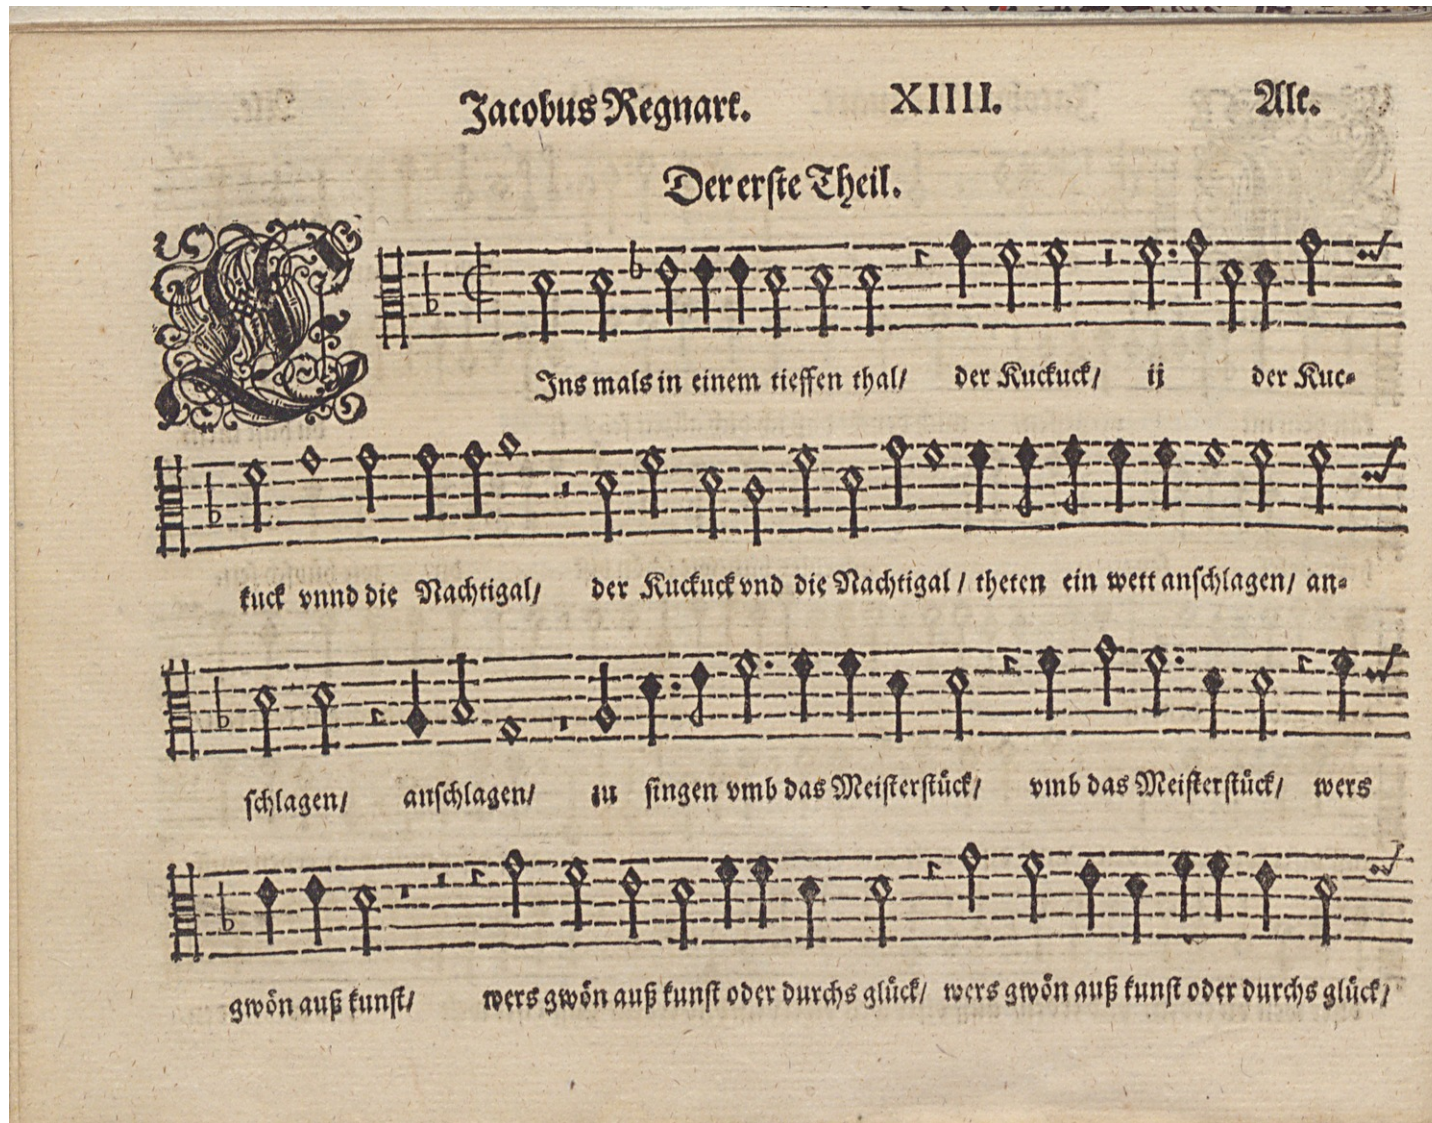 Jacobus Regnart. XIIII. Alt.
Der erste Theil.
EJns mals in einem tieffen thal/ der Kuckuck/ ij der Kuc-
kuck vnnd die Nachtigal/ der Kuckuck vnd die Nachtigal / theten ein wett anschlagen/ an-
schlagen/ anschlagen/ zu singen vmb das Meisterstück/ vmb das Meisterstück/ wers
gwön auß kunst/ wers gwön auß kunst oder durchs glück/ wers gwön auß kunst oder durchs glück/